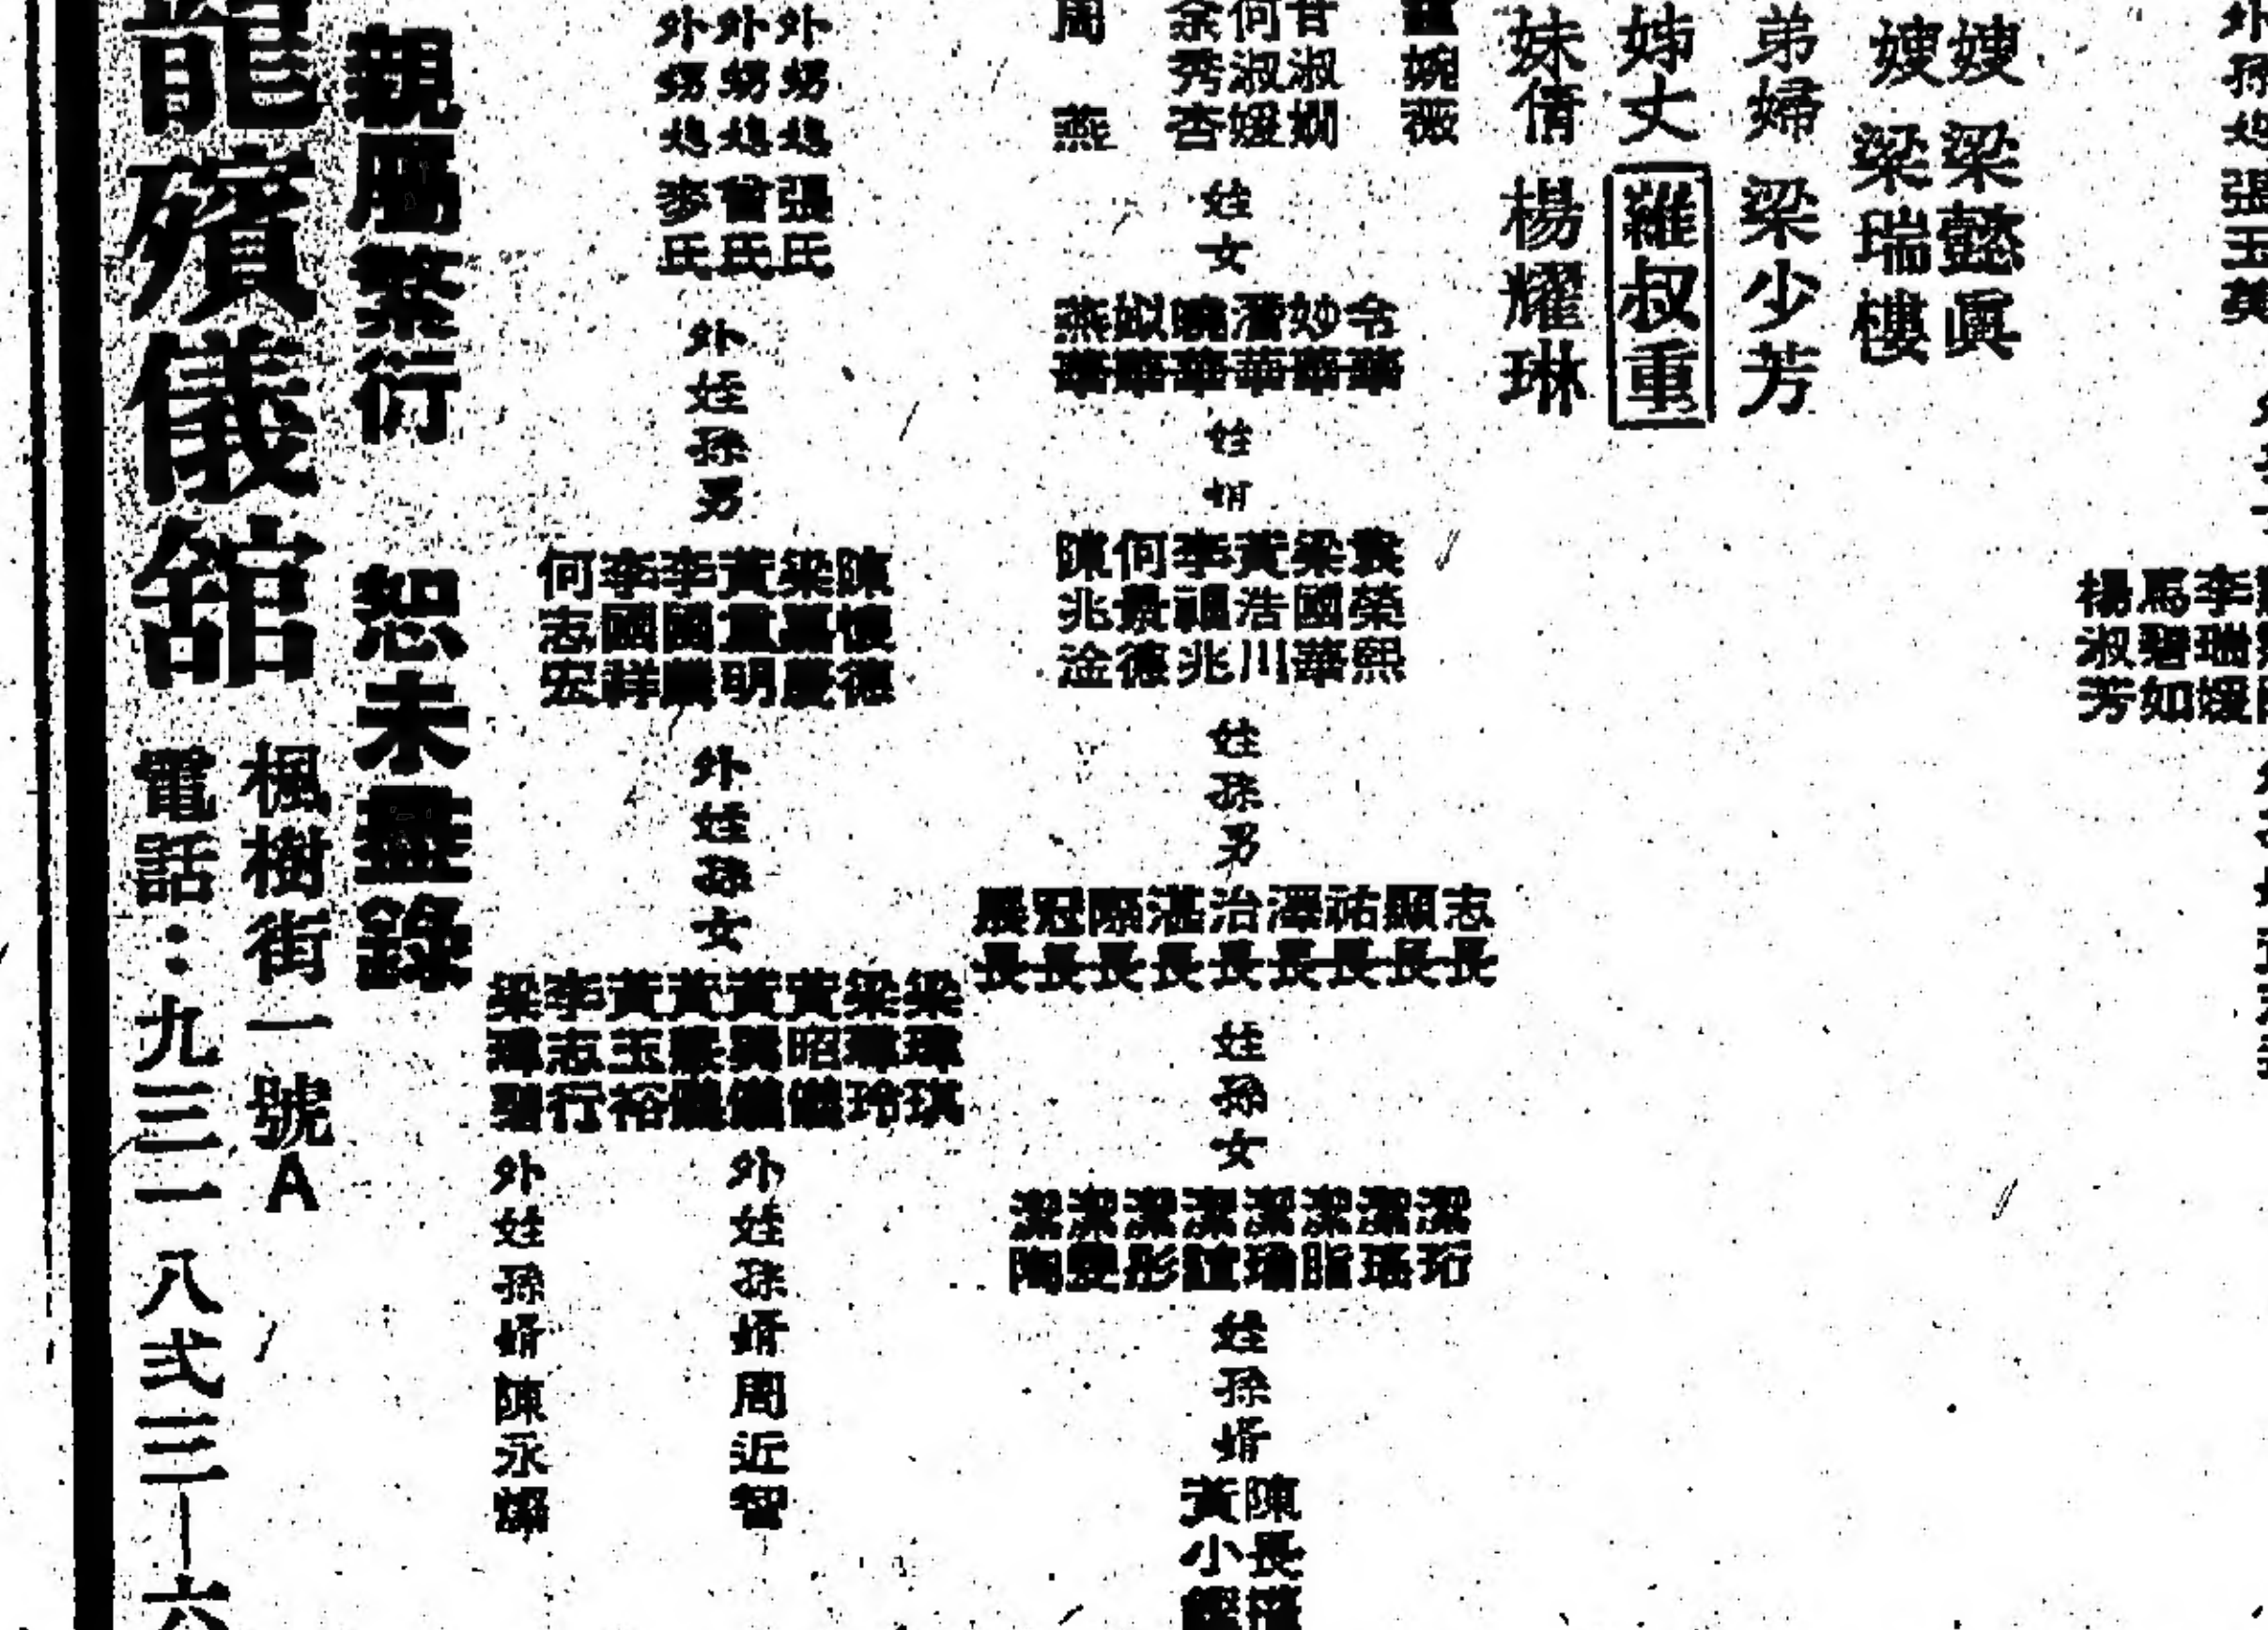 張玉
李瑞媛
馬碧如
楊淑芳
嫂 梁懿眞
嫂 梁瑞樓
弟婦 梁少芳
姊丈 羅叔重
妹倩 楊耀琳
婉薇
甘淑嫻
何淑媛
余秀杏
周 燕
姪女
令華
妙華
潛華
曉華
姒華
燕華
姪婿
袁榮熙
梁國華
黃浩川
李福兆
何景德
陳兆淦
姪孫男
志長
顯長
祐長
澤長
治長
湛長
際長
冠長
展長
姪孫女
潔珩
潔瑤
潔脂
潔瑜
潔誼
潔彤
潔雯
潔陶
姪孫婿
陳長
黃小
外甥媳張氏
外甥媳曾氏
外甥媳麥氏
外姪孫男
陳懷德
梁萬慶
黃重明
李國麟
李國祥
何志宏
外姪孫女
梁瑋琪
梁瑋玲
黃昭儀
黃儀
黃儀
黃玉裕
李志行
梁瑋
外姪孫婿周近智
外姪孫婿陳永燦
親屬繁衍 恕未盡錄
楓樹街一號A
龍殯儀舘 電話：九三一八弍三三—六